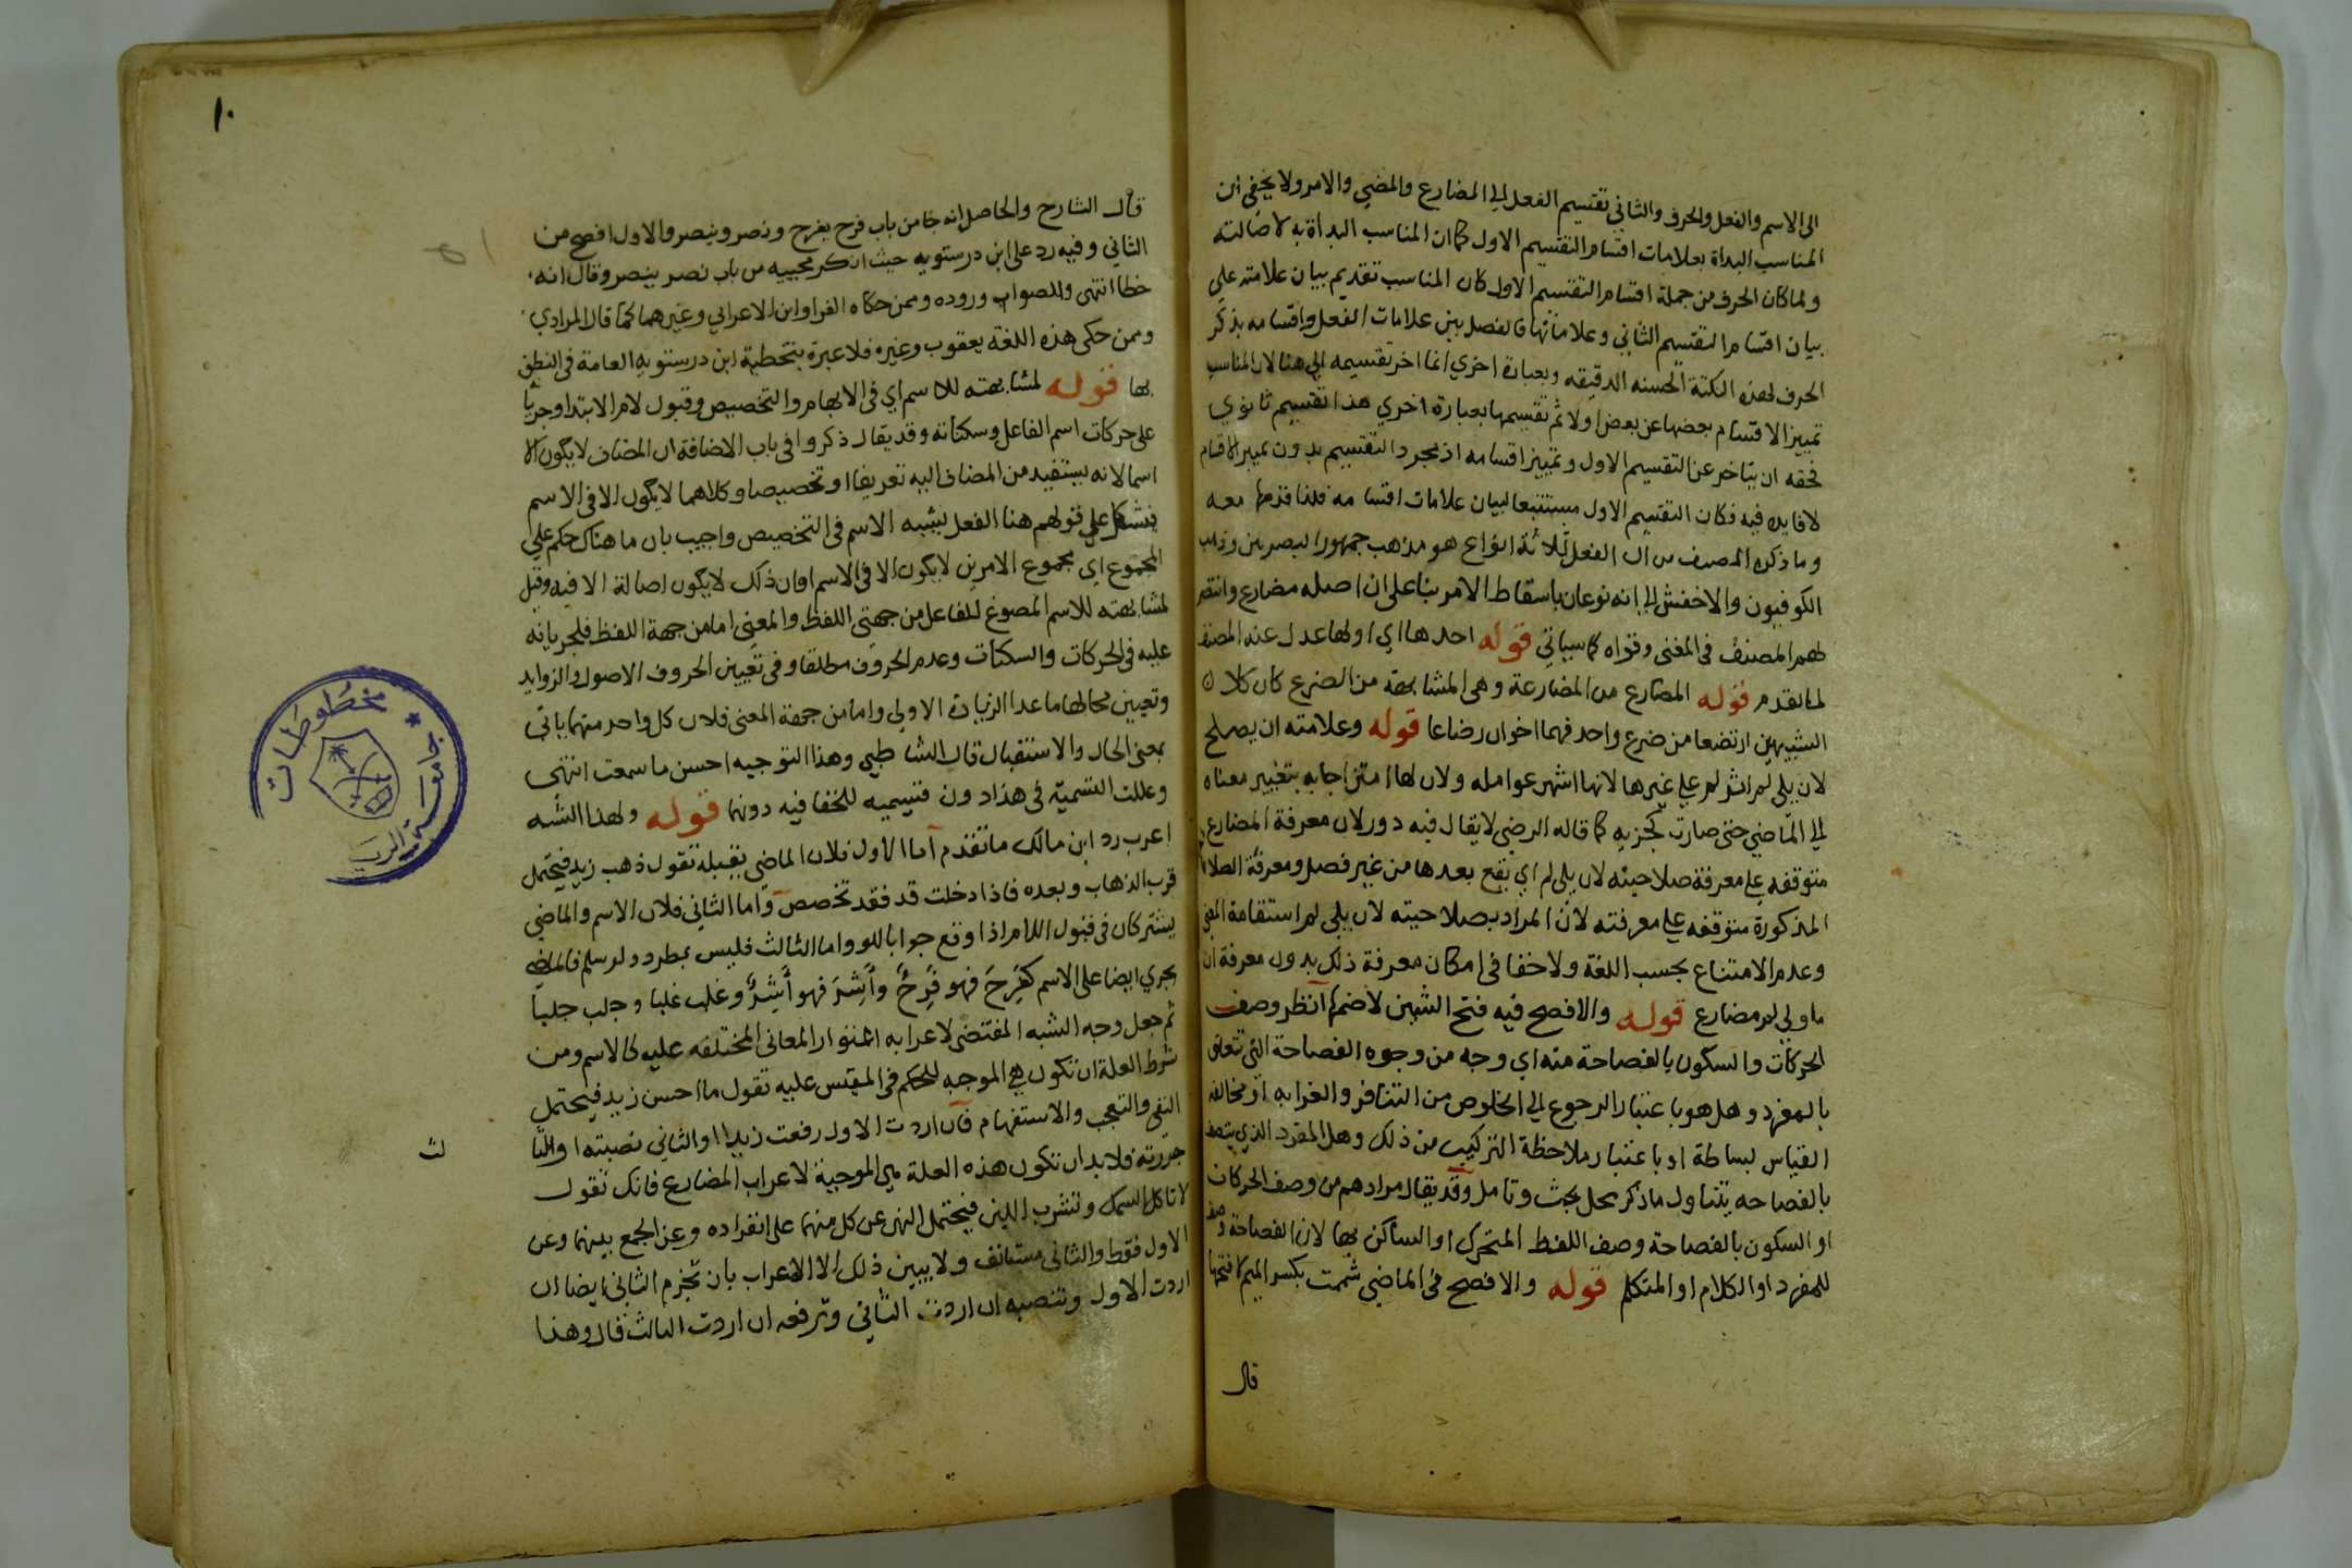 الى الاسم والفعل والحرف والثاني تقسيم الفعل الى المضارع والمضي والامر ولا يخفى ان
المناسب البداة بعلامات اقسام التقسيم الاول كما ان المناسب البداة به لاصالته
ولما كان الحرف من جملة اقسام التقسيم الاول كان المناسب تقديم بيان علامته على
بيان اقسام التقسيم الثاني وعلاماتها فالفصل بين علامات الفعل واقسامه بذكر
الحرف لهذه النكتة الحسنه الدقيقه وبعبارة اخري انما اخر تقسيمه الى هنا لان المناسب
تمييز الاقسام بعضها عن بعض اولا ثم تقسيمها بعبارة اخري هذا تقسيم ثانوي
فحقه ان يتاخر عن التقسيم الاول وتمييز اقسامه اذ مجرد التقسيم بدون تمييز الاقسام
لا فايده فيه فكان التقسيم الاول مستتبعا لبيان علامات اقسامه فلذا قدمها معه
وما ذكره المصنف من ان الفعل ثلاثة انواع هو مذهب جمهور البصريين وذهب
الكوفيون والاخفش الى انه نوعان باسقاط الامر بنا على ان اصله مضارع وانتصر
لهم المصنف في المغني وقواه كما سياتي قوله احدها اي اولها عدل عنه المصنف
لما تقدم قوله المضارع من المضارعة وهي المشابهة من الضرع كان كلا
الشبيهين ارتضعا من ضرع واحد فهما اخوان رضاعا قوله وعلامته ان يصلح
لان يلي لم اثر لم على غيرها لانها اشهر عوامله ولان لها امتزاجا به بتغيير معناه
الى الماضي حتى صارت كجزيه كما قاله الرضي لا يقال فيه دور لان معرفة المضارع
متوقفه على معرفة صلاحيته لان يلي لم اي يقع بعدها من غير فصل ومعرفة الصلاحية
المذكورة متوقفه على معرفته لان المراد بصلاحيته لان يلي لم استقامة المعنى
وعدم الامتناع بحسب اللغة ولا خفا في امكان معرفة ذلك بدون معرفة ان
ما ولي لم مضارع قوله والافصح فيه فتح الشين لاضمها انظر وصف
الحركات والسكون بالفصاحة منه اي وجه من وجوه الفصاحة التي تتعلق
بالمفرد وهل هو باعتبار الرجوع الى الخلوص من التنافر والغرابه او مخالفة
القياس لبساطة او باعتبار ملاحظة التركيب من ذلك وهل المفرد الذي يتصف
بالفصاحه يتناول ما ذكر محل بحث وتامل وقد يقال مرادهم من وصف الحركات
او السكون بالفصاحة وصف اللفظ المتحرك او الساكن بها لان الفصاحة وصف
للمفرد او الكلام او المتكلم قوله والافصح في الماضي شممت بكسر الميم لا فتحها
قال
١٠
قال الشارح والحاصل انه جا من باب فرح يفرح ونصر وينصر والاول افصح من
الثاني وفيه رد على ابن درستويه حيث انكر مجييه من باب نصر ينصر وقال انه
خطا انتهى والصواب وروده وممن حكاه الفرا وابن الاعرابي وغيرهما كما قال المرادي
وممن حكى هذه اللغة يعقوب وغيره فلا عبرة بتخطية ابن درستويه العامة في النطق
بها قوله لمشابهته للاسم اي في الابهام والتخصيص وقبول لام الابتدا وجريا
على حركات اسم الفاعل وسكناته وقد يقال ذكروا في باب الاضافة ان المضاف لا يكون الا
اسما لانه يستفيد من المضاف اليه تعريفا او تخصيصا وكلاهما لا يكون الا في الاسم
فيشكل على قولهم هنا الفعل يشبه الاسم في التخصيص واجيب بان ما هناك حكم على
المجموع اي مجموع الامرين لا يكون الا في الاسم او ان ذلك لا يكون اصالة الا فيه وقيل
لمشابهته للاسم المصوغ للفاعل من جهتي اللفظ والمعنى اما من جهة اللفظ فلجريانه
عليه في الحركات والسكنات وعدد الحروف مطلقا وفي تعيين الحروف الاصول والزوايد
وتعيين محالها ما عدا الزيادة الاولى واما من جهة المعنى فلان كل واحد منهما ياتي
بمعنى الحال والاستقبال قال الشاطبي وهذا التوجيه احسن ما سمعت انتهى
وعللت التسمية في هذا دون قسيميه للخفا فيه دونهما قوله ولهذا الشبه
اعرب رد ابن مالك ما تقدم اما الاول فلان الماضي يقبله تقول ذهب زيد فيحتمل
قرب الذهاب وبعده فاذا دخلت قد فقد تخصص واما الثاني فلان الاسم والماضي
يشتركان في قبول اللام اذا وقع جوابا للو واما الثالث فليس بمطرد ولو سلم فالماضي
يجري ايضا على الاسم كفَرِحَ فهو فَرِحٌ وأَشِرَ فهو أَشِرٌ وغلب غلبا وجلب جلبا
ثم جعل وجه الشبه المقتضي لاعرابه اعتوار المعاني المختلفه عليه كالاسم ومن
شرط العلة ان تكون هي الموجبه للحكم في المقيس عليه تقول ما احسن زيد فيحتمل
النفي والتعجب والاستفهام فان اردت الاول رفعت زيدا او الثاني نصبته او الثا
لث
جررته فلا بد ان تكون هذه العلة هي الموجبة لاعراب المضارع فانك تقول
لا تاكل السمك وتشرب اللبن فيحتمل النهي عن كل منهما على انفراده وعن الجمع بينهما وعن
الاول فقط والثاني مستانف ولا يبين ذلك الا الاعراب بان تجزم الثاني ايضا ان
اردت الاول وتنصبه ان اردت الثاني وترفعه ان اردت الثالث قال وهذا
مخطوطات
جامعة الرياض